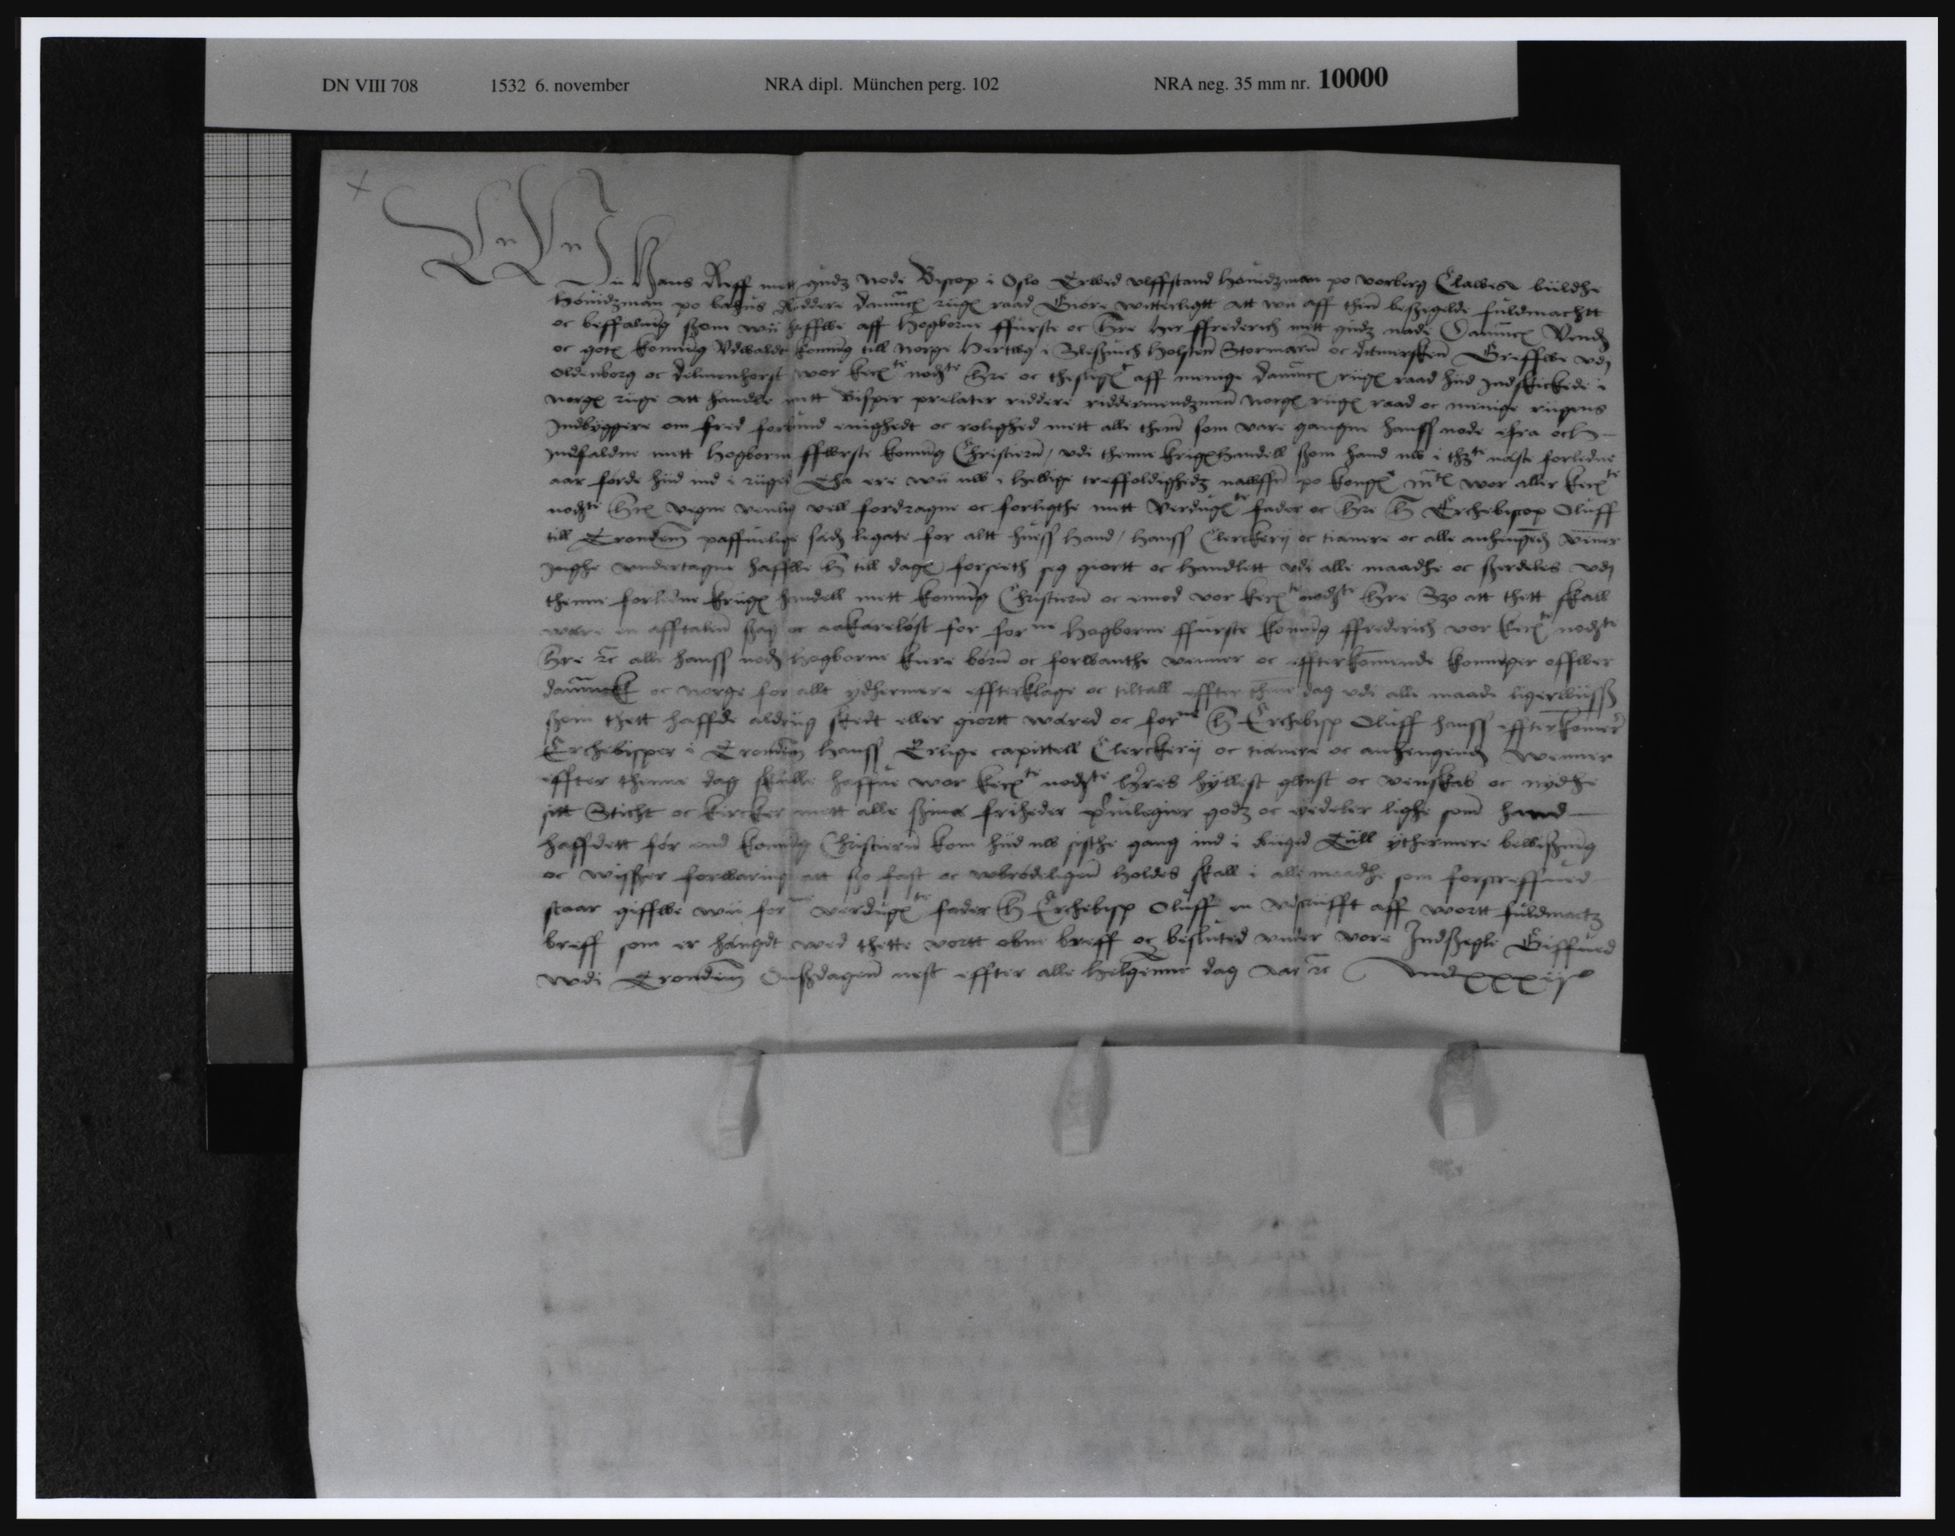 DN VIII 708 1532 6. november NRA dipl. München perg. 102 NRA neg. 35 mm nr. 10000
Wii Hans Reff mett gudz node Biscop i Oslo Erwed ulffstand höuidzman po vorberg Clawes bilde
höuidzman po bahus Riddere danmarcks rigis raad Giöre witterligtt att wii aff then beszegelde fuldmachtt
oc beffalning szom wii haffwe aff Hogborne ffurste oc Hre Her ffrederich mett gudz nade Danmarcks Vendis
oc gotis konning Vdwaldt konning till Norge Hertwg i Sleszuick Holsten Stormarn oc ditmersken Greffwe vdi
Oldenborg oc delmenhorst wor keriste nodiste Hre oc thesligist aff menige danmarcks rigis raad hiid indskickede i
Norgis rige att handle mett Bisper prelater riddere riddermendzmen Norgis rigis raad oc menige rigens
Indbyggere om fred forbund enighedt oc rolighed mett alle them som vare gangne hanss node ifra och
indfaldne mett Hogborne ffwrste konning Christiern, vdi thenne krigs handell szom hand nw i thz næste forledne
aar förde hiid ind i riiget Tha ere wii nw i hellige treffoldighedz naffn po kongis mts wor aller keriste
nodiste Hres vegne venlig vell fordragne oc forligthe mett Verdugiste fader oc Hre H Erchebiscop Oluff
till Trondem paffuelige sædis ligate for altt huess hand, hanss Clerckerij oc tienere oc alle anhengendis venner
inghe vndertagne haffwe H till dagis forseeth seg giortt oc handlett vdi alle maadhe oc szerdeles vdi
thenne forledne krigs handell mett konning Christiern oc emod vor keriste nodiste Hre Szo att thett skall
være en afftalen szag oc aakareløst for forne Hogborne ffurste konning ffrederich vor keriste nodiste
Hre etc alle hanss nodis Hogborne kere børn oc forwanthe venner oc effterkommende konninger offwer
danmarck oc Norge for allt ydhermere effterklage oc tiltall effter thenne dag vdi alle maade ligerwiiss
szom thett haffde aldrig skedt eller giortt wæred oc forne H Erchebisp Oluff hanss effterkomer
Erchebisper i Trondem hanss Erlige capittell Clerckerij oc tienere oc anhengendis wenner
effter thenne dag skulle haffue wor keriste nodiste Hres hyllest gwnst oc venskab oc nydhe
sitt Sticht oc kircker mett alle szine friheder priuilegier godz oc eyedeler lighe som hand
haffdett før end konning Christiern kom hiid nw sisthe gang ind i riiget Till ythermere bewiszning
oc wiszer forwaring att szo fast oc wbrödeligen holdes skall i alle maadhe som forscreffuid
staar giffwe wii forne verdugiste fader H Erchebisp Oluff en vtscrifft aff wortt fuldmactz
breff som er hangdt wed thette vortt obne breff oc besluted vnder vore Indszegle Giffued
wdi Trondem Onszdagen nest effter alle helgenne dag aar etc mdxxxijo